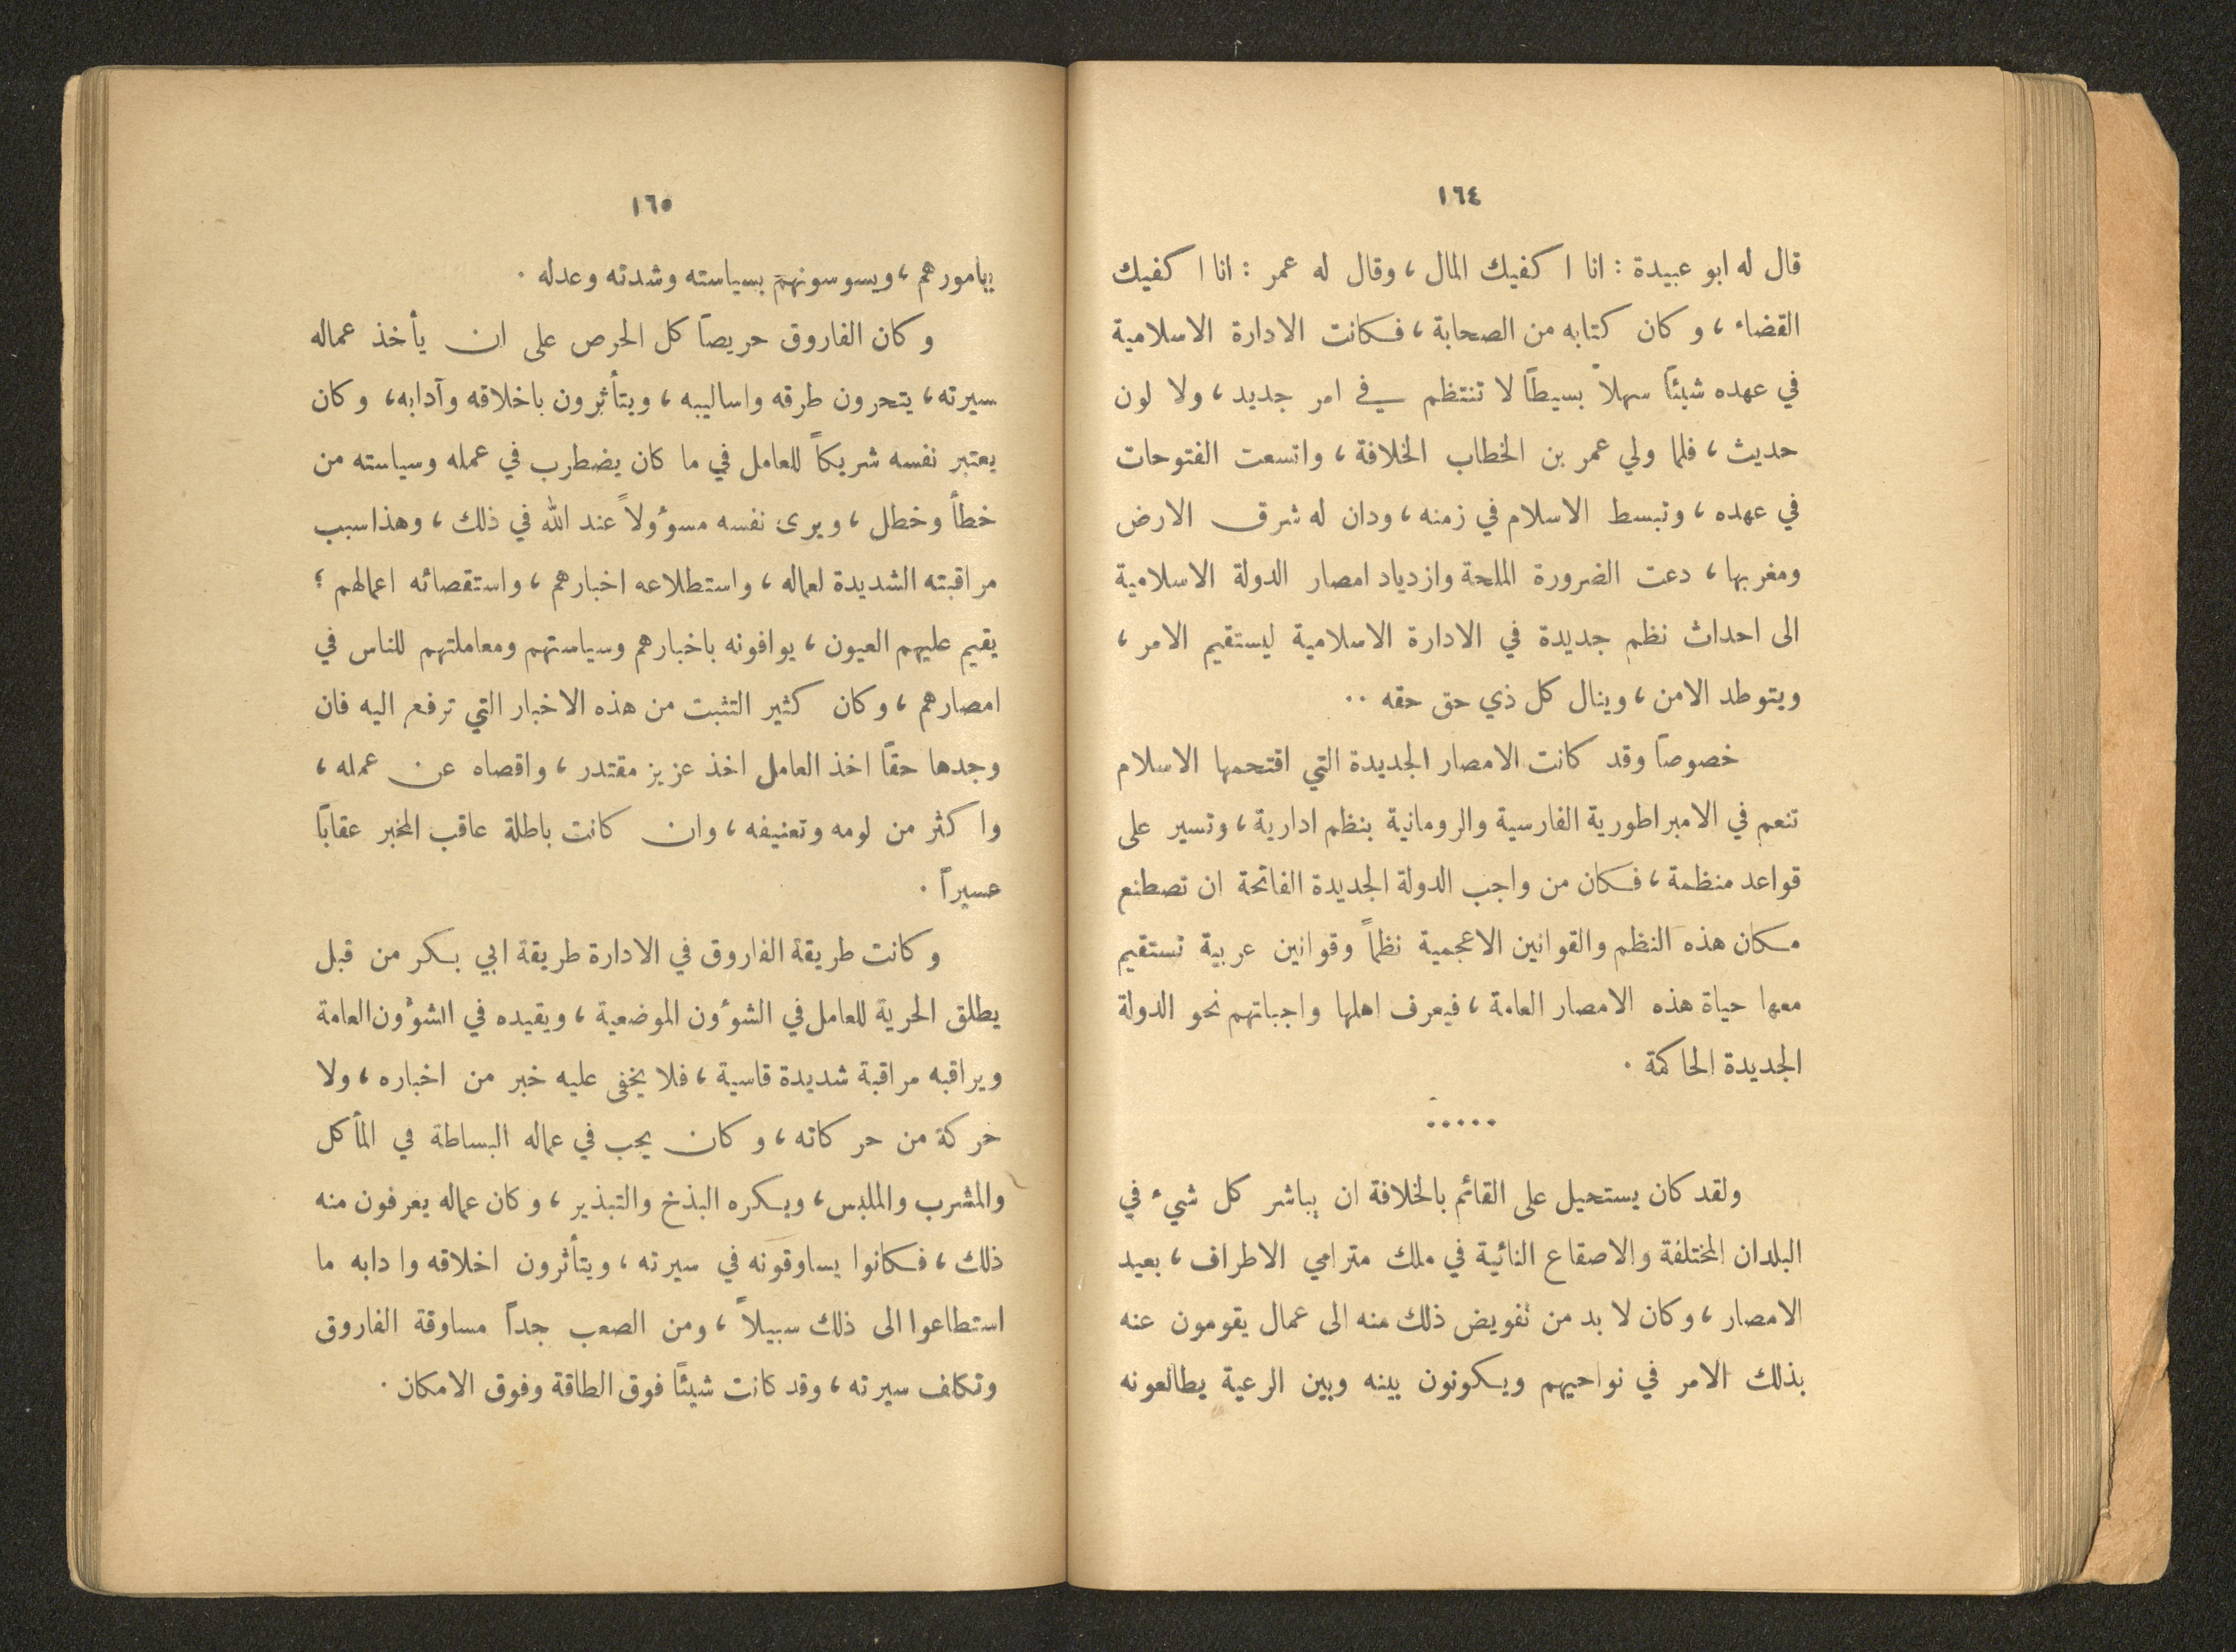 ١٦٤
قال له ابو عبيدة : انا اكفيك المال ، وقال له عمر : انا اكفيك
القضاء ، وكان كتابه من الصحابة ، فكانت الادارة الاسلامية
في عهده شيئاً سهلاً بسيطاً لا تنتظم في امر جديد ، ولا لون
حديث ، فلما ولي عمر بن الخطاب الخلافة ، واتسعت الفتوحات
في عهده ، وتبسط الاسلام في زمنه ، ودان له شرق الارض
ومغربها ، دعت الضرورة الملحة وازدياد امصار الدولة الاسلامية
الى احداث نظم جديدة في الادارة الاسلامية ليستقيم الامر ،
ويتوطد الامن ، وينال كل ذي حق حقه ..
خصوصاً وقد كانت الامصار الجديدة التي اقتحمها الاسلام
تنعم في الامبراطورية الفارسية والرومانية بنظم ادارية ، وتسير على
قواعد منظمة ، فكان من واجب الدولة الجديدة الفاتحة ان تصطنع
مكان هذه النظم والقوانين الاعجمية نظماً وقوانين عربية تستقيم
معها حياة هذه الامصار العامة ، فيعرف اهلها واجباتهم نحو الدولة
الجديدة الحاكمة .
.....
ولقد كان يستحيل على القائم بالخلافة ان يباشر كل شيء في
البلدان المختلفة والاصقاع النائية في ملك مترامي الاطراف ، بعيد
الامصار ، وكان لا بد من تفويض ذلك منه الى عمال يقومون عنه
بذلك الامر في نواحيهم ويكونون بينه وبين الرعية يطالعونه
١٦٥
بامورهم ، ويسوسونهم بسياسته وشدته وعدله .
وكان الفاروق حريصاً كل الحرص على ان يأخذ عماله
سيرته ، يتحرون طرقه واساليبه ، ويتأثرون باخلاقه وآدابه ، وكان
يعتبر نفسه شريكاً للعامل في ما كان يضطرب في عمله وسياسته من
خطأ وخطل ، ويرى نفسه مسؤولاً عند الله في ذلك ، وهذا سبب
مراقبته الشديدة لعماله ، واستطلاعه اخبارهم ، واستقصائه اعمالهم ؟
يقيم عليهم العيون ، يوافونه باخبارهم وسياستهم ومعاملتهم للناس في
امصارهم ، وكان كثير التثبت من هذه الاخبار التي ترفع اليه فان
وجدها حقاً اخذ العامل اخذ عزيز مقتدر ، واقصاه عن عمله ،
واكثر من لومه وتعنيفه ، وان كانت باطلة عاقب المخبر عقاباً
عسيراً .
وكانت طريقة الفاروق في الادارة طريقة ابي بكر من قبل
يطلق الحرية للعامل في الشؤون الموضعية ، ويقيده في الشؤون العامة
ويراقبه مراقبة شديدة قاسية ، فلا يخفى عليه خبر من اخباره ، ولا
حركة من حركاته ، وكان يحب في عماله البساطة في المأكل
والمشرب والملبس ، ويكره البذخ والتبذير ، وكان عماله يعرفون منه
ذلك ، فكانوا يساوقونه في سيرته ، ويتأثرون اخلاقه وادابه ما
استطاعوا الى ذلك سبيلاً ، ومن الصعب جداً مساوقة الفاروق
وتكلف سيرته ، وقد كانت شيئاً فوق الطاقة وفوق الامكان .